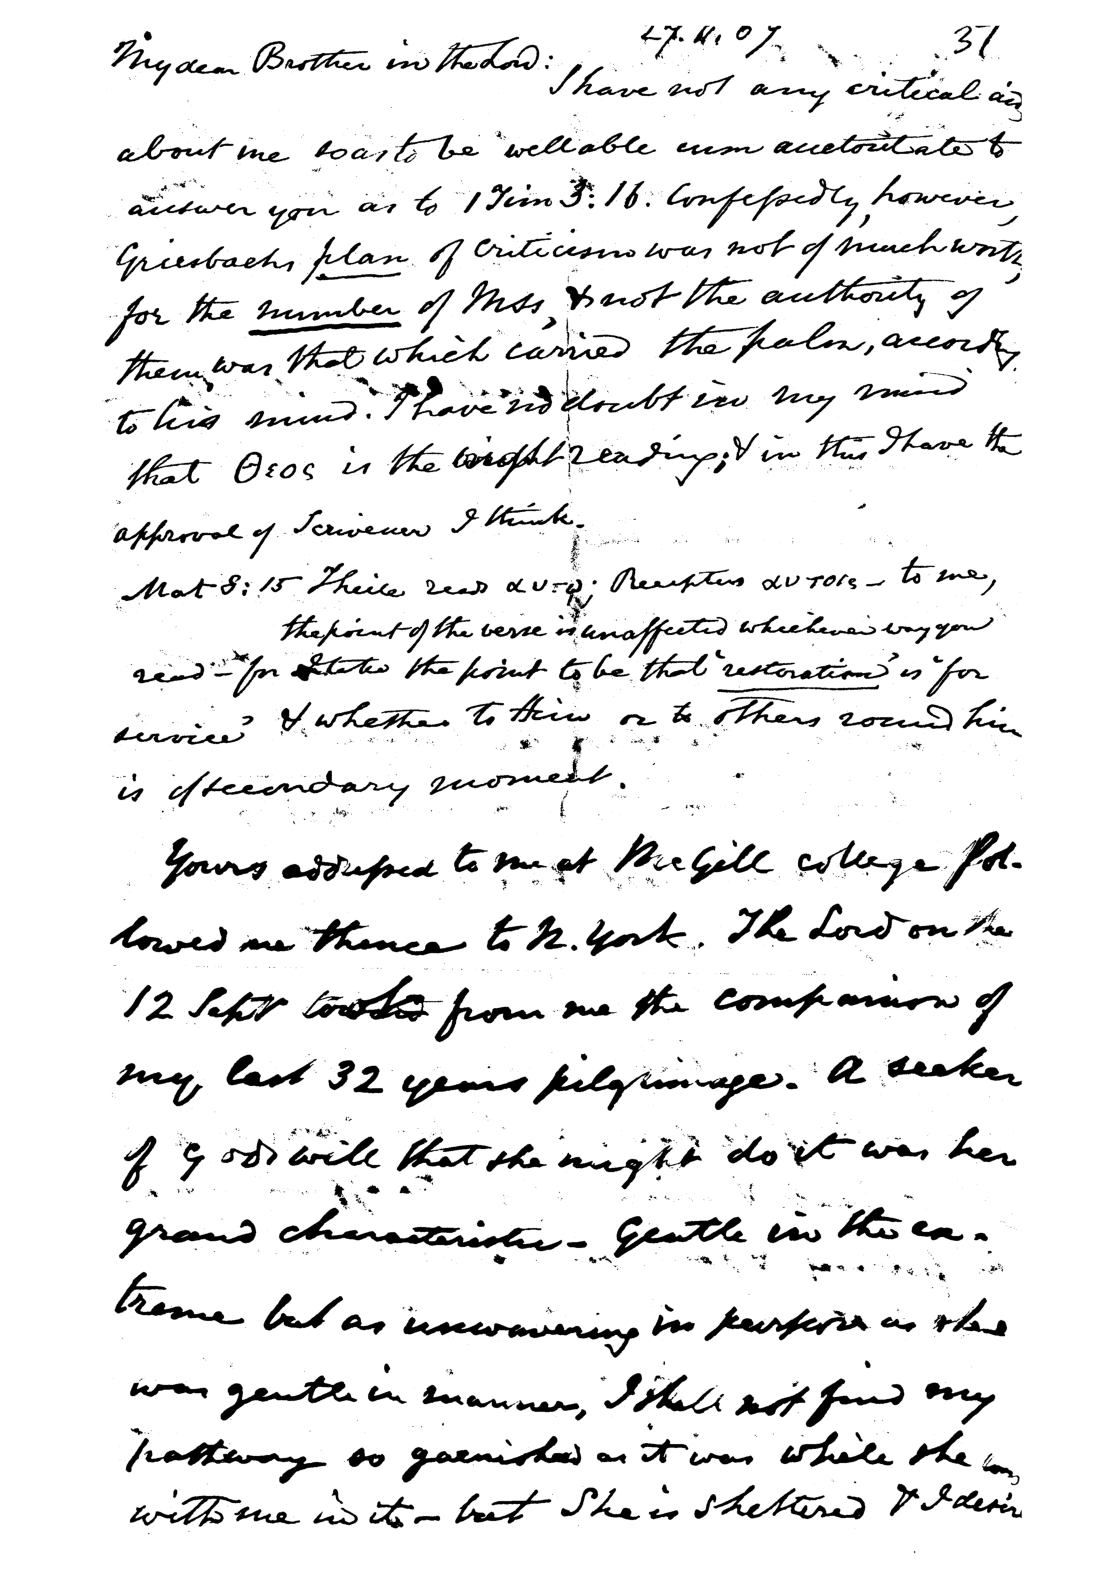 27.11.07 31
My dear Brother in the Lord:
I have not any critical aid
about me so as to be well able cum auctoritate to
answer you as to 1 Tim 3:16. Confessedly, however,
Griesbachs plan of criticism was not of much worth,
for the number of Mss, & not the authority of
them, was that which carried the palm, accordg
to his mind. I have no doubt in my mind
that Θεος is the right reading; & in this I have the
approval of Scrivener I think.
Mat 8:15 Theile reads αυτῳ; Receptus αυτοις – to me,
the point of the verse is unaffected whichever way you
read – for I take the point to be that "restoration" is "for
service" & whether to Him or to others round him
is of secondary moment.
Yours addressed to me at McGill college fol-
lowed me thence to N. York. The Lord on the
12 Sept took from me the companion of
my last 32 years pilgrimage. A seeker
of Gods will that she might do it was her
grand characteristic – Gentle in the ex-
treme but as unwavering in purpose as she
was gentle in manner, I shall not find my
pathway so garnished as it was while she was
with me in it – but She is sheltered & I desire